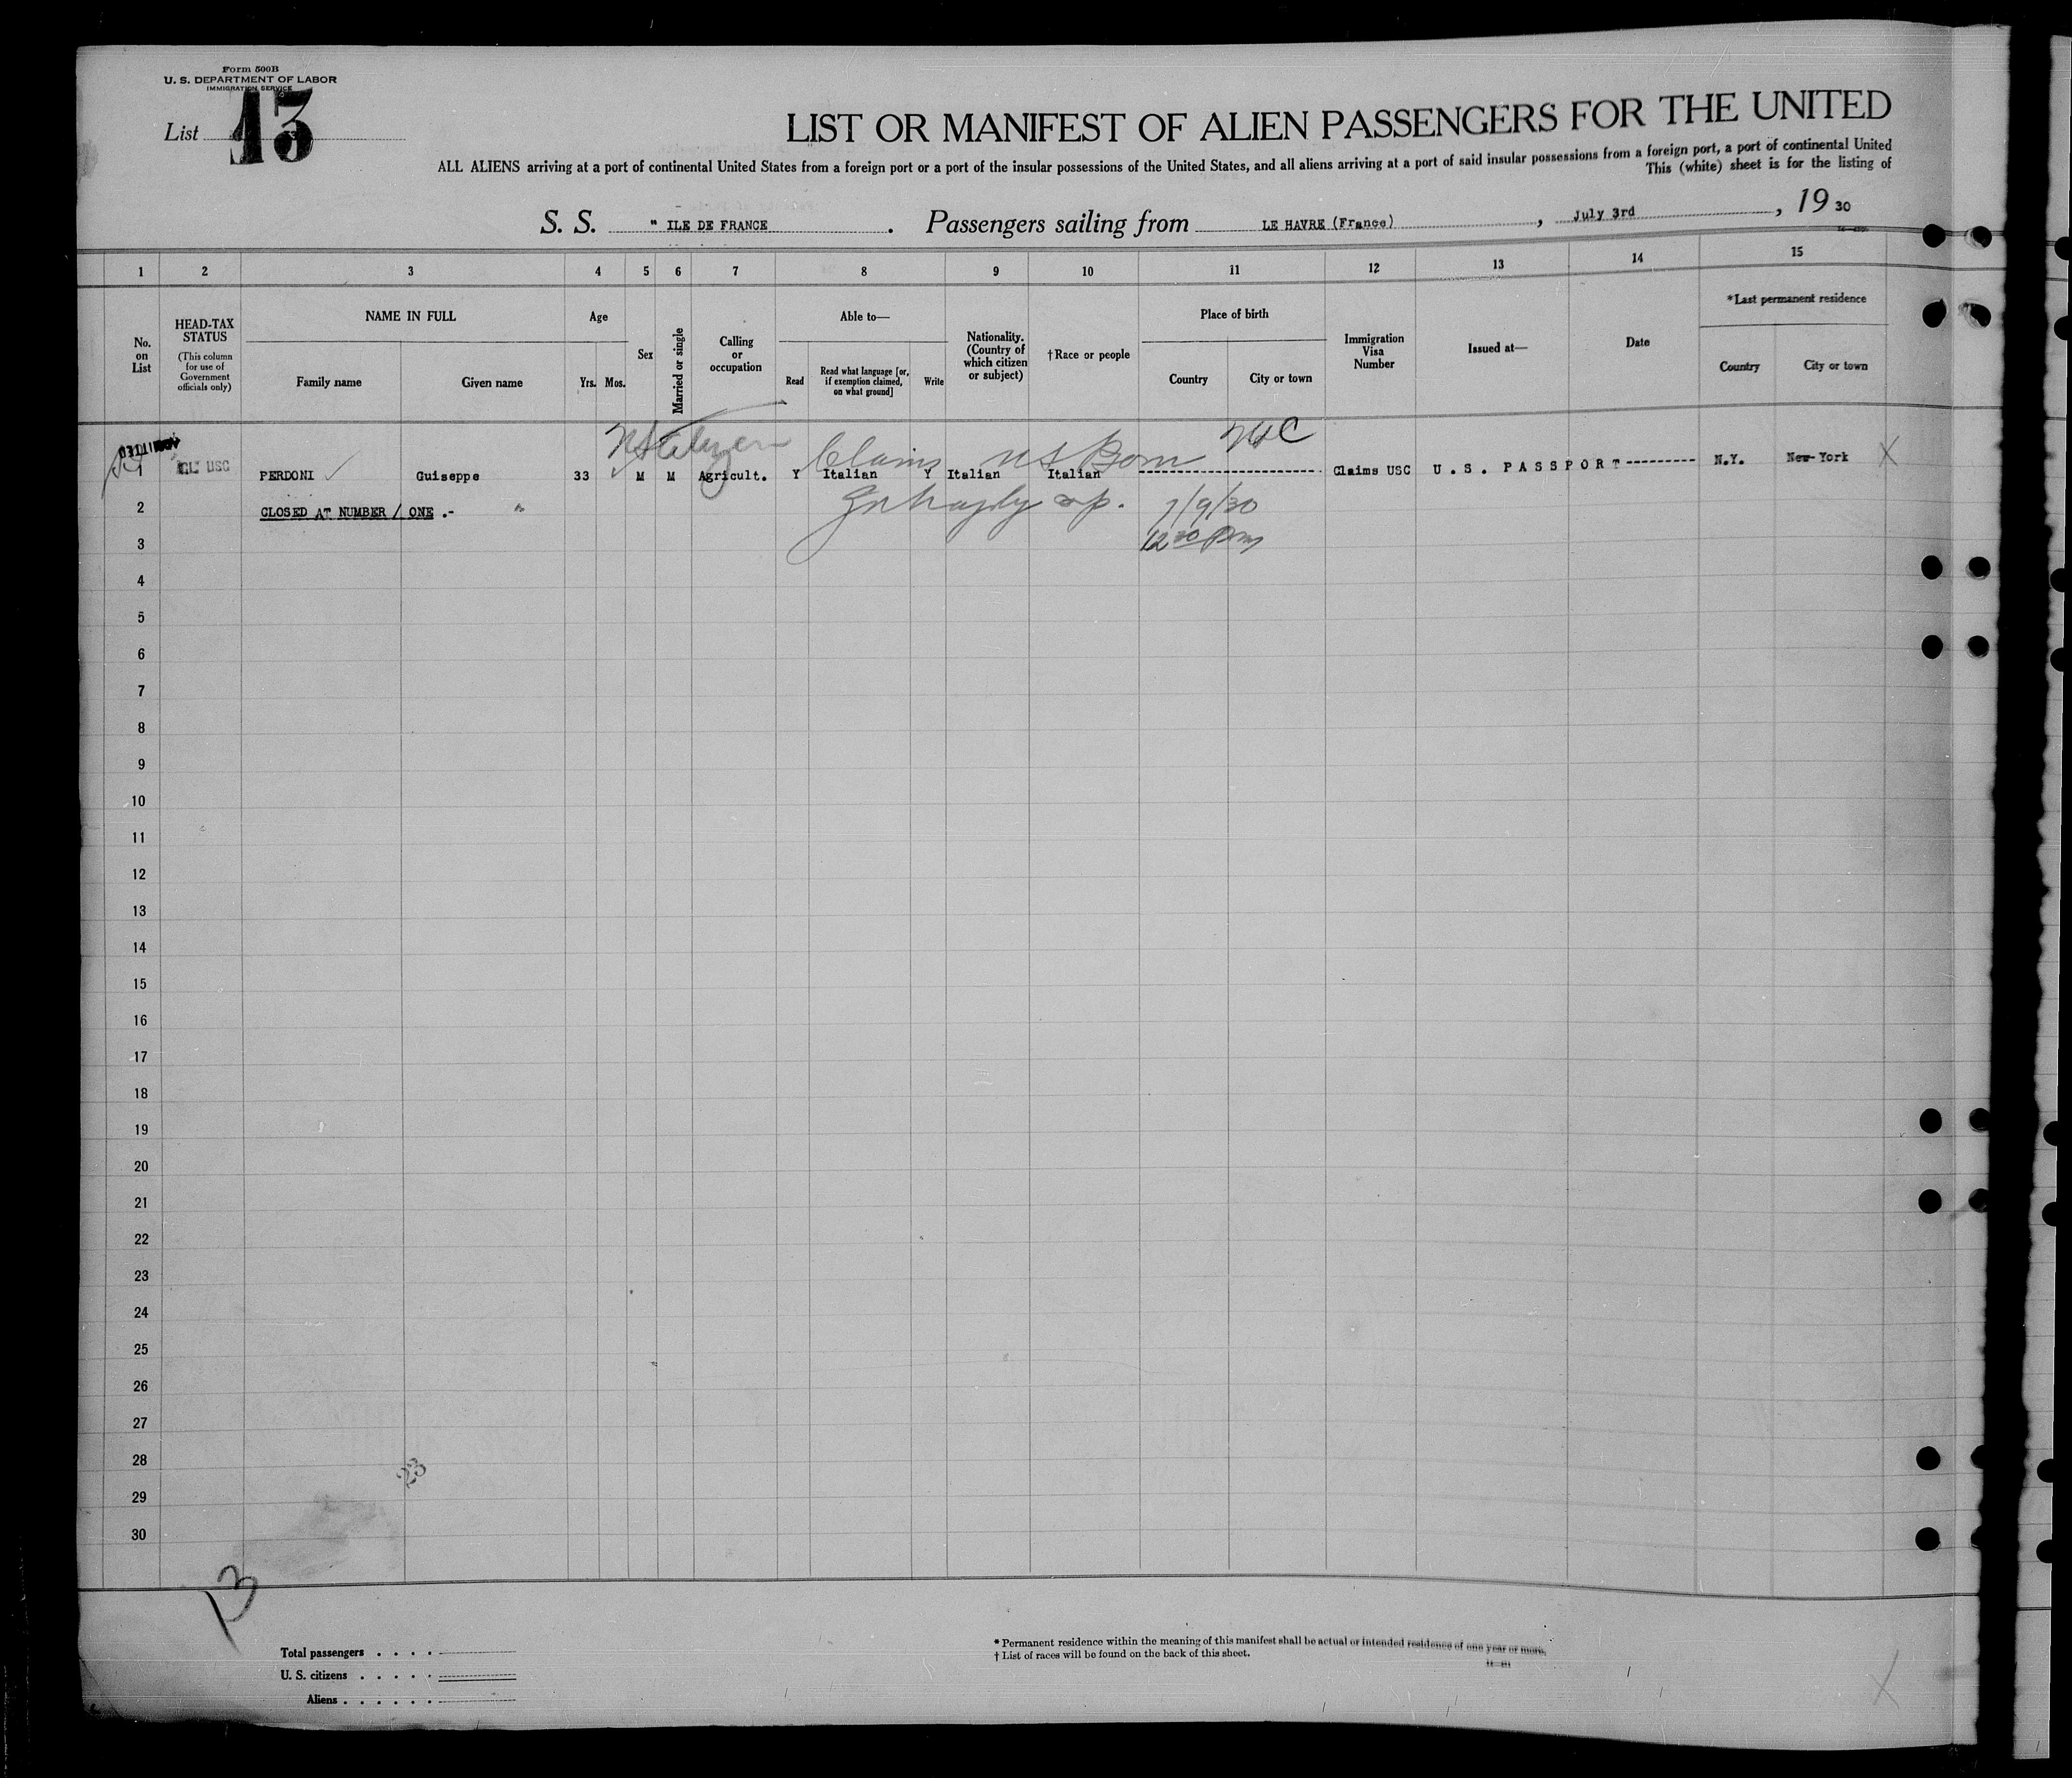 Form 500B
U. S. DEPARTMENT OF LABOR
IMMIGRATION SERVICE
List 13
LIST OR MANIFEST OF ALIEN PASSENGERS FOR THE UNITED
ALL ALIENS arriving at a port of continental United States from a foreign port or a port of the insular possessions of the United States, and all aliens arriving at a port of said insular possessions from a foreign port, a port of continental United
This (white) sheet is for the listing of
S. S. " ILE DE FRANCE . Passengers sailing from LE HAVRE (France) , July 3rd , 19 30
1 2 3 4 5 6 7 8 9 10 11 12 13 14 15
No. on List
HEAD-TAX STATUS
(This column for use of Government officials only)
NAME IN FULL
Family name Given name
Age
Yrs. Mos.
Sex
Married or single
Calling or occupation
Able to—
Read
Read what language [or, if exemption claimed, on what ground]
Write
Nationality. (Country of which citizen or subject)
†Race or people
Place of birth
Country City or town
Immigration Visa Number
Issued at—
Date
*Last permanent residence
Country City or town
US Citizen Claims US Born USC
1 USC PERDONI Guiseppe 33 M M Agricult. Y Italian Y Italian Italian Claims USC U. S. PASSPORT N.Y. New-York X
2 CLOSED AT NUMBER / ONE .-
7/9/30
3
12 30 Pm
4
5
6
7
8
9
10
11
12
13
14
15
16
17
18
19
20
21
22
23
24
25
26
27
28
23
29
30
13
Total passengers . . . .
U. S. citizens . . . . .
Aliens . . . . . .
* Permanent residence within the meaning of this manifest shall be actual or intended residence of one year or more.
† List of races will be found on the back of this sheet.
X